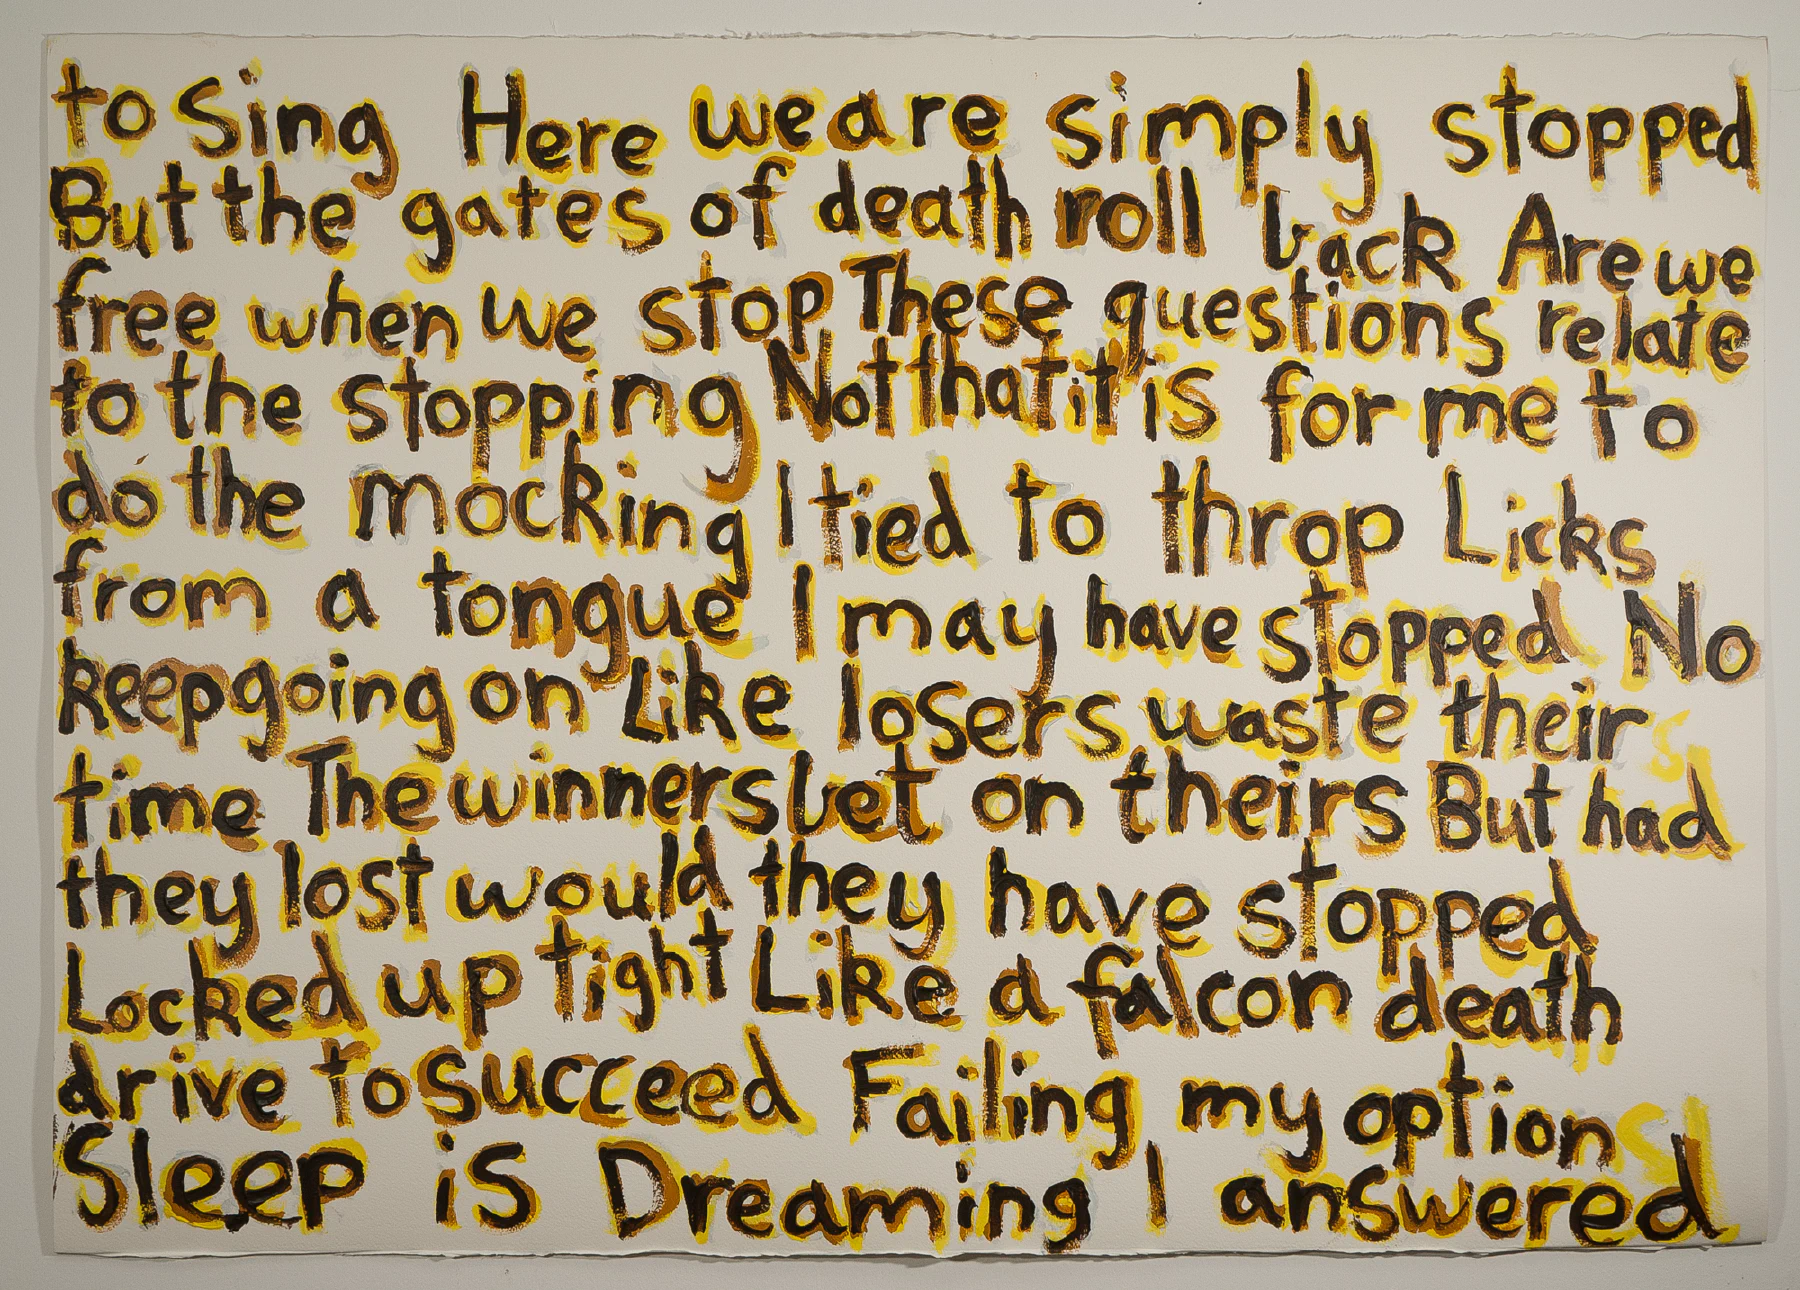 to Sing Here we are simply stopped
But the gates of death roll back Are we
free when we stop These questions relate
to the stopping Not that it is for me to
do the mocking I tied to throp Licks
from a tongue I may have stopped No
keep going on Like losers waste their
time The winners bet on theirs But had
they lost would they have stopped
Locked up tight Like a falcon death
drive to succeed Failing my option
Sleep is Dreaming I answered